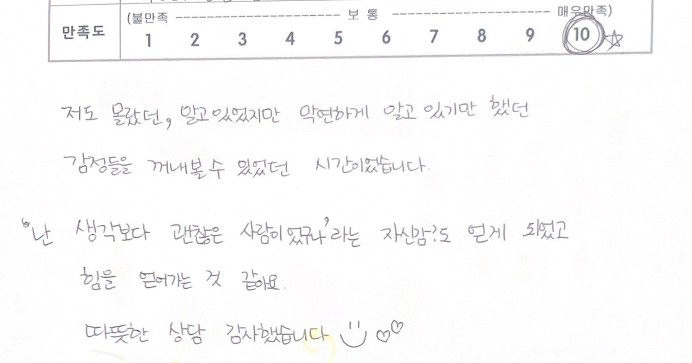 (불만족 ------------------ 보 통 ------------------ 매우만족)
만족도 1 2 3 4 5 6 7 8 9 10 ☆
저도 몰랐던, 알고있었지만 막연하게 알고 있기만 했던
감정들을 꺼내볼 수 있었던 시간이었습니다.
'난 생각보다 괜찮은 사람이었구나'라는 자신감?도 얻게 되었고
힘을 얻어가는 것 같아요.
따뜻한 상담 감사했습니다 :) ♡♡